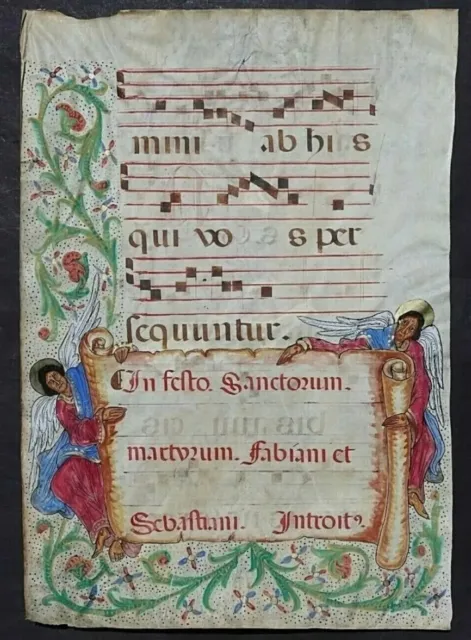 mini ab hi s
qui vo s per
sequuntur.
In festo. Sanctorum.
martyrum. Fabiani et
Sebastiani. Introitꝰ.